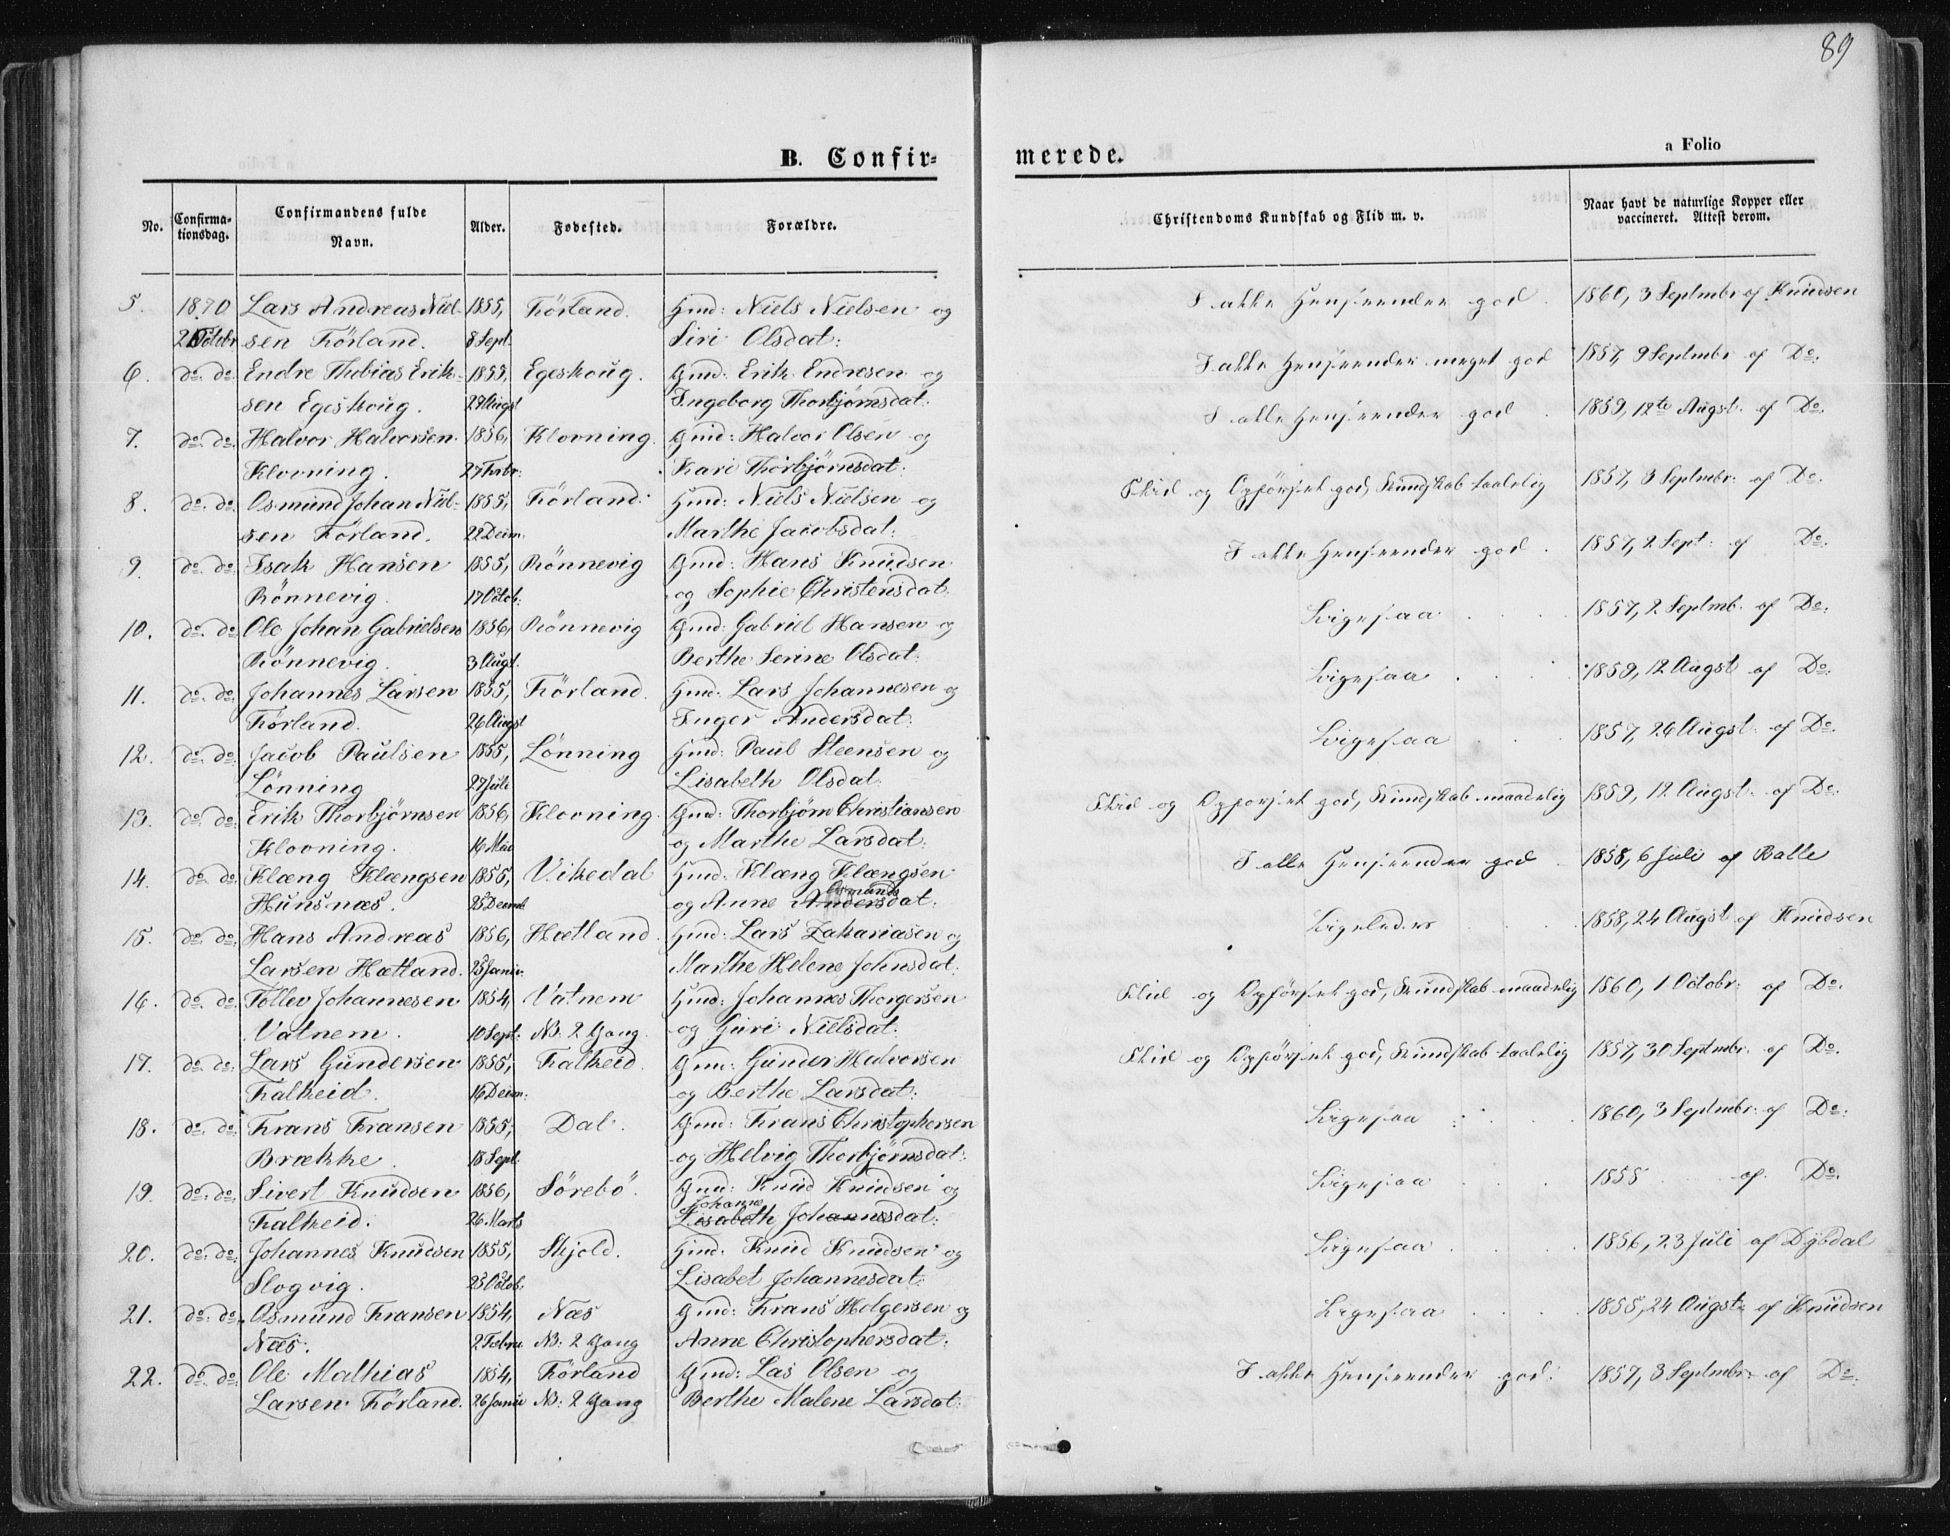 89
B. Confir=
merede.
a Folio
No.
Confirma-
tionsdag.
Confirmandens fulde
Navn.
Alder.
Fødested.
Forældre.
Christendoms Kundskab og Flid m. v.
Naar havt de naturlige Kopper eller
vaccineret. Attest derom.
5. 1870 Lars Andreas Niel- 1855, Förland. Gmd: Niels Nielsen og I alle Henseender god. 1860, 3 Septmbr af Knudsen
2 Octobr sen Förland. 8 Sept. Siri Olsdat:
6. do: do: Endre Thobias Erik- 1855, Egeskoug. Gmd: Erik Endresen og I alle Henseender meget god 1857, 9 Septmbr af Do:
sen Egeskoug. 28 Augst Ingeborg Thorbjørnsdat:
7. do: do: Halvor Halvorsen 1856, Klovning. Gmd: Halvor Olsen og I alle Henseender god. 1859, 12te Augst. af Do:
Klovning. 27 Febr: Kari Thorbjørnsdat:
8. do: do: Osmund Johan Niel- 1855, Förland: Gmd: Niels Nielsen og Flid og Opførsel god, Kundskab taalelig 1857, 3 Septmbr: af Do:
sen Förland. 22 Decm. Marthe Jacobsdat:
9. do: do: Isak Hansen 1855, Rönnevig Gmd: Hans Knudsen I alle Henseender god. 1857, 2 Sept: af Do:
Rönnevig. 17 Octob: og Sophie Christensdat.
10. do: do: Ole Johan Gabrielsen 1856, Rönnevig Gmd: Gabriel Hansen og Ligesaa 1857, 2 Septmb. af Do:
Rönnevig. 3 Augst. Berthe Serine Olsdat:
11. do: do: Johannes Larsen 1855, Förland. Gmd: Lars Johannesen og Ligesaa 1859, 12 Augst af Do:
Förland. 26 Augst Inger Andersdat:
12. do: do: Jacob Paulsen 1855, Lönning Gmd: Paul Steensen og Ligesaa 1857, 26 Augst. af Do:
Lönning 27 Juli Lisabeth Olsdat:
13. do: do: Erik Thorbjørnsen 1856, Klovning. Gmd: Thorbjørn Christiansen Flid og Opførsel god, Kundskab maadelig 1859, 12 Augst. af Do:
Klovning. 16 Mai og Marthe Larsdat:
14. do: do: Klæng Klængsen 1855, Vikedal Gmd: Klæng Klængsen I alle Henseender god. 1858, 6 Juli af Balle
Hunsnæs. 25 Decmb. og Anne Andersdat:
15. do: do: Hans Andreas 1856, Hætland. Gmd: Lars Zakariasen og Ligeledes 1858, 24 Augst af Knudsen
Larsen Hætland. 25 Januv. Marthe Helene Johnsdat:
16. do: do: Tollev Johannesen 1854, Vatnem Gmd: Johannes Thorgersen Flid og Opførsel god, Kundskab maadelig 1860, 1 Octobr: af Do:
Vatnem. 10 Sept: NB. 2 Gang. og Guri Nielsdat:
17. do: do: Lars Gundersen 1855, Falkeid. Gmd: Gunder Halvorsen Flid og Opførsel god, Kundskab taalelig 1857, 30 Septmbr: af Do:
Falkeid. 16 Decm: og Berthe Larsdat:
18. do: do: Frans Fransen 1855, Dal. Gmd: Frans Christophersen Ligesaa 1860, 3 Septmbr: af Do:
Brække. 18 Sept. og Helvig Thorbjørnsdat:
19. do: do: Sivert Knudsen 1856, Sörebö. Gmd: Knud Knudsen og Ligesaa 1858 af Do:
Johanne
Falkeid. 26 Marts Lisabeth Johannesdat:
20. do: do: Johannes Knudsen 1855, Skjold. Gmd: Knud Knudsen og Ligesaa 1856, 23 Juli af Dybdal
Slogvig. 25 Octob. Lisabet Johannesdat:
21. do: do: Osmund Fransen 1854, Næs Gmd: Frans Holgersen og Ligesaa 1855, 24 Augst: af Knudsen
Næs. 2 Febru NB: 2 Gang Anne Christophersdat:
22. do: do: Ole Mathias 1854, Förland Gmd: Las Olsen og I alle Henseender god: 1857, 3 Septmbr: af Do:
Larsen Förland. 26 Januv NB: 2 Gang Berthe Malene Larsdat: